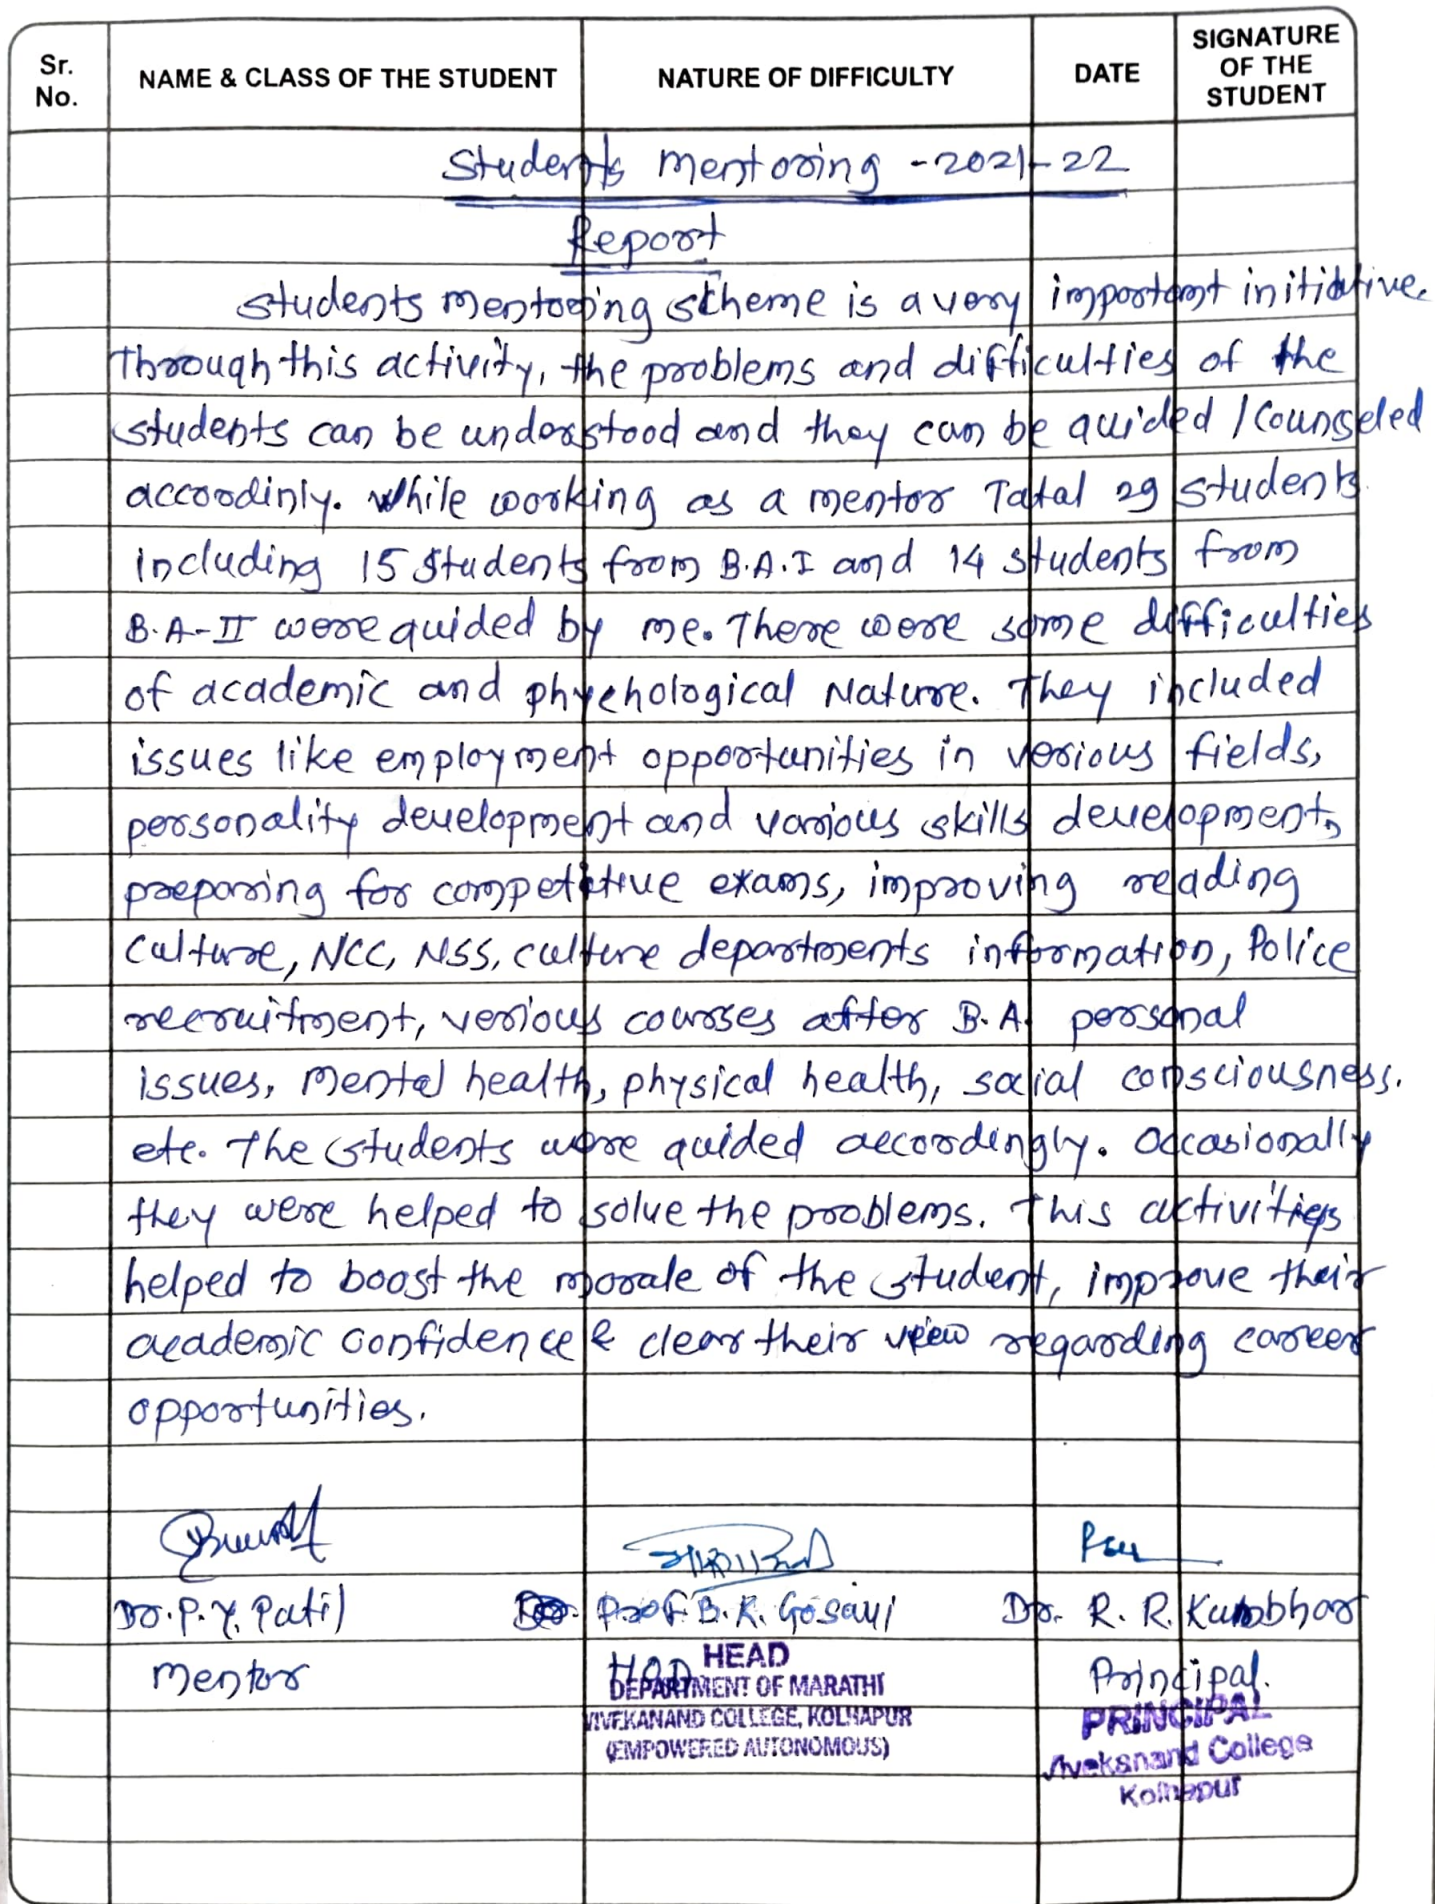 Sr. No.
NAME & CLASS OF THE STUDENT
NATURE OF DIFFICULTY
DATE
SIGNATURE OF THE STUDENT
Students Mentoring - 2021-22
Report
students mentoring scheme is a very important initiative.
Through this activity, the problems and difficulties of the
students can be understood and they can be guided / Counseled
accordinly. While working as a mentor Tatal 29 students
including 15 students from B.A.I and 14 students from
B.A-II were guided by me. There were some difficulties
of academic and phychological Nature. They included
issues like employment opportunities in verious fields,
personality development and various skills development,
preparing for competitive exams, improving reading
culture, NCC, NSS, culture departments information, Police
recruitment, verious courses after B.A. personal
issues, mental health, physical health, social consciousness.
etc. The students were guided accordingly. Occasionally
they were helped to solve the problems. This activities
helped to boost the morale of the student, improve their
academic confidence & clear their view regarding career
opportunities.
Dr. P. Y. Patil
Prof. B. K. Gosavi
Dr. R. R. Kumbhar
Mentor
HOD
Principal.
HEAD
DEPARTMENT OF MARATHI
VIVEKANAND COLLEGE, KOLHAPUR
(EMPOWERED AUTONOMOUS)
PRINCIPAL
Vivekanand College
Kolhapur